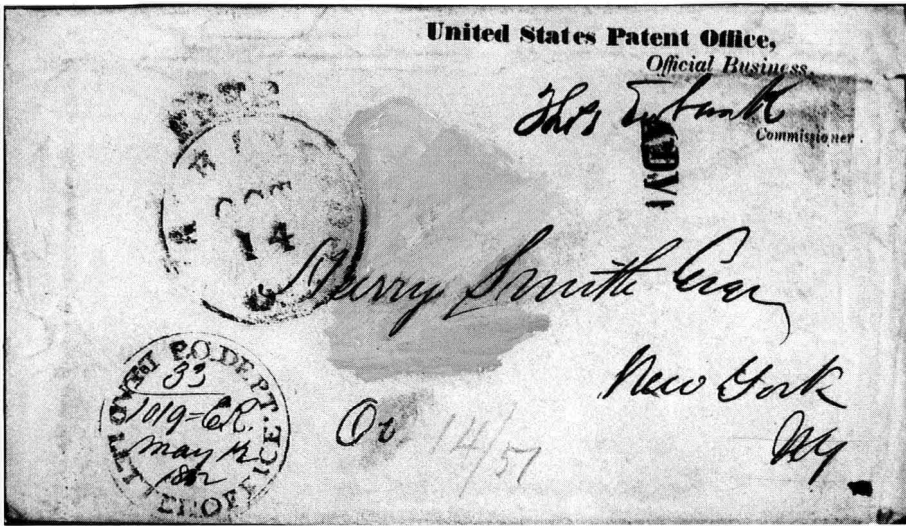 United States Patent Office,
Official Business.
Thos Ewbank
Commissioner.
FREE
OCT
14
ADV
Smith
New York
NY
P.O.DEPT.
DEAD LETTER OFFICE
33
1019=ER.
May 12
14/51